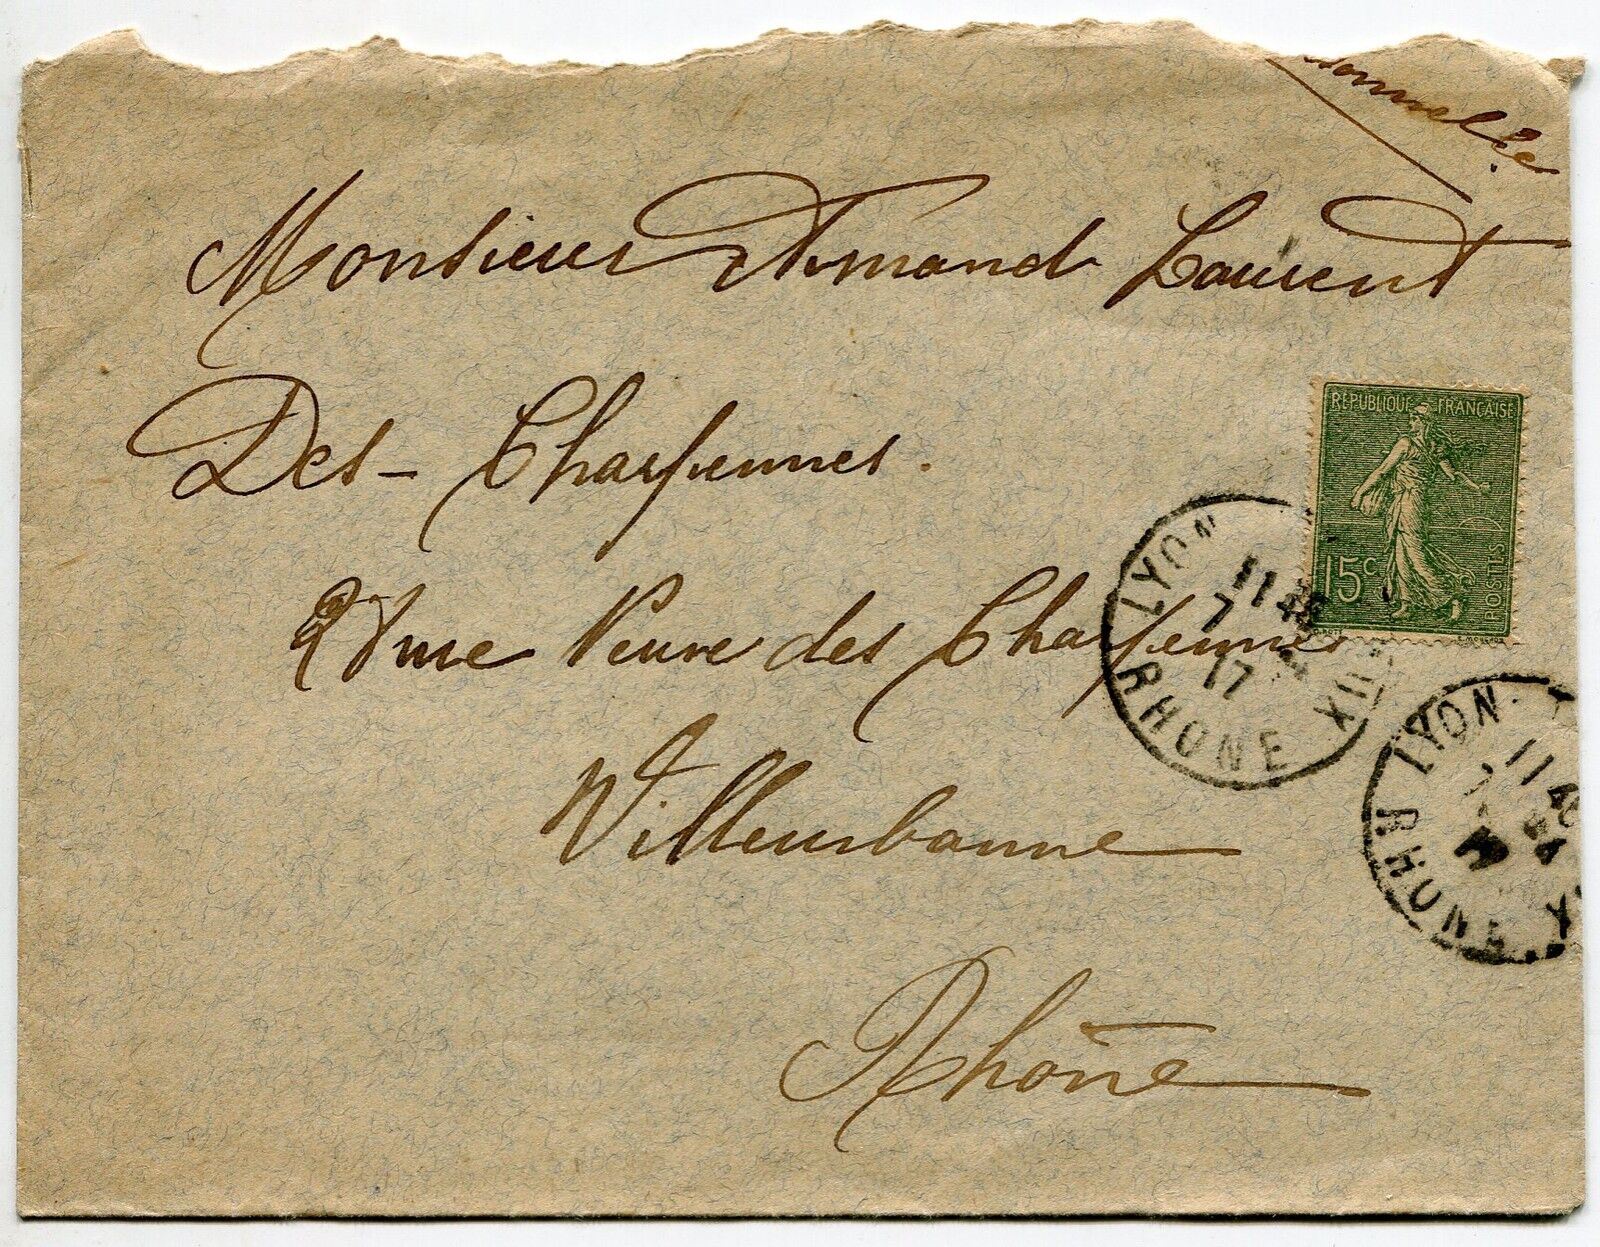 sonnelle
Monsieur Armand Laurent
Des - Charpennes.
rue Neuve des Charpennes
Villeurbanne
Rhône
RÉPUBLIQUE FRANÇAISE
15c
POSTES
E. MOUCHON
LYON
11 45
7
17
RHONE
LYON
11 45
RHONE